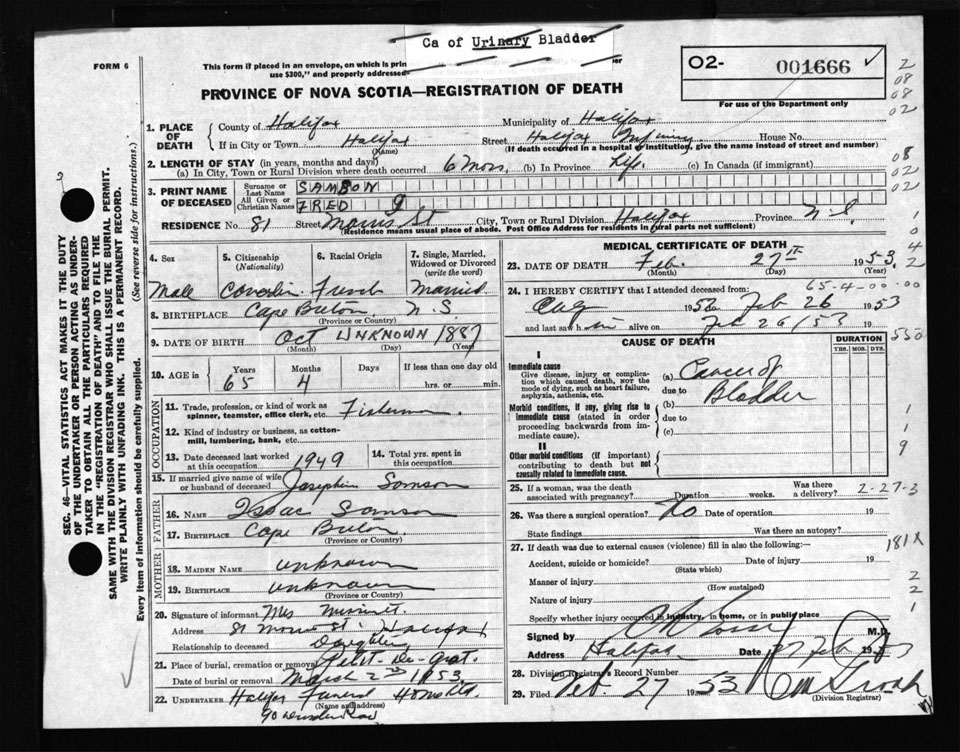 Ca of Urinary Bladder
FORM 6
This form if placed in an envelope, on which is prin
use $300," and properly addressed-
er
O2- 001666 ✓
For use of the Department only
PROVINCE OF NOVA SCOTIA—REGISTRATION OF DEATH
1. PLACE OF DEATH
County of Halifax Municipality of Halifax
If in City or Town Halifax Street Halifax Infirmary House No.
(Name) (If death occurred in a hospital or institution, give the name instead of street and number)
2. LENGTH OF STAY (in years, months and days)
(a) In City, Town or Rural Division where death occurred 6 Mos. (b) In Province Life. (c) In Canada (if immigrant)
3. PRINT NAME OF DECEASED
Surname or Last Name SAMSON
All Given or Christian Names FRED J
RESIDENCE No. 81 Street Morris St City, Town or Rural Division Halifax Province N.S.
(Residence means usual place of abode. Post Office Address for residents in rural parts not sufficient)
4. Sex 5. Citizenship (Nationality) 6. Racial Origin 7. Single, Married, Widowed or Divorced (write the word)
Male Canadian French Married
8. BIRTHPLACE Cape Breton N.S.
(Province or Country)
9. DATE OF BIRTH Oct UNKNOWN 1887
(Month) (Day) (Year)
10. AGE in Years Months Days If less than one day old
65 4 hrs. or min.
OCCUPATION
11. Trade, profession, or kind of work as spinner, teamster, office clerk, etc. Fisherman.
12. Kind of industry or business, as cotton-mill, lumbering, bank, etc.
13. Date deceased last worked at this occupation 1949 14. Total yrs. spent in this occupation
15. If married give name of wife or husband of deceased Josephine Samson
FATHER
16. NAME Issac Samson
17. BIRTHPLACE Cape Breton.
(Province or Country)
MOTHER
18. MAIDEN NAME unknown
19. BIRTHPLACE unknown
(Province or Country)
20. Signature of informant Mrs
Address 81 Morris St. Halifax
Relationship to deceased Daughter
21. Place of burial, cremation or removal Petit-de-Grat.
Date of burial or removal March 2nd 1953
22. UNDERTAKER Halifax Funeral Home Ltd.
(Name and Address)
90
MEDICAL CERTIFICATE OF DEATH
23. DATE OF DEATH Feb. 27th 1953.
(Month) (Day) (Year)
65-4-00-00
24. I HEREBY CERTIFY that I attended deceased from:
Aug 1952 Feb 26 1953
and last saw him alive on Feb 26/53 19
CAUSE OF DEATH DURATION
YRS. MOS. DYS.
I
Immediate cause
Give disease, injury or complication which caused death, not the mode of dying, such as heart failure, asphyxia, asthenia, etc.
(a) Cancer of
due to Bladder
Morbid conditions, if any, giving rise to immediate cause (stated in order proceeding backwards from immediate cause).
(b)
due to
(c)
II
Other morbid conditions (if important) contributing to death but not causally related to immediate cause.
25. If a woman, was the death associated with pregnancy? Duration weeks. Was there a delivery? 2-27-3
26. Was there a surgical operation? No Date of operation 19
State findings Was there an autopsy?
27. If death was due to external causes (violence) fill in also the following:—
Accident, suicide or homicide? Date of injury 19
(State which)
Manner of injury
(How sustained)
Nature of injury
Specify whether injury occurred in industry, in home, or in public place
Signed by M.D.
Address Halifax Date 27 Feb 1953
28. Division Registrar's Record Number
29. Filed Feb. 27 1953
(Division Registrar)
SEC. 46—VITAL STATISTICS ACT MAKES IT THE DUTY OF THE UNDERTAKER OR PERSON ACTING AS UNDERTAKER TO OBTAIN ALL THE PARTICULARS REQUIRED IN THE "REGISTRATION OF DEATH" AND TO FILE THE SAME WITH THE DIVISION REGISTRAR WHO SHALL ISSUE THE BURIAL PERMIT.
WRITE PLAINLY WITH UNFADING INK. THIS IS A PERMANENT RECORD.
Every item of information should be carefully supplied. (See reverse side for instructions.)
2
08
08
02
08
02
02
1
0
4
2
550
1
1
9
181X
2
2
1